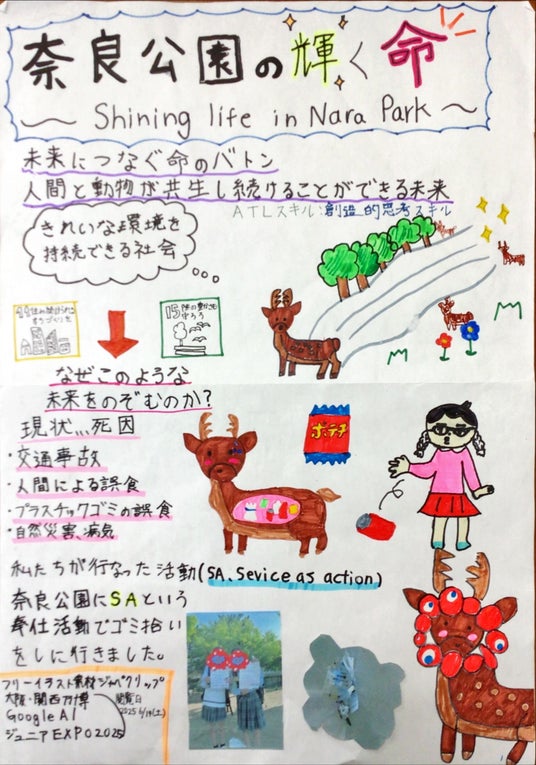 奈良公園の輝く命
～ Shining life in Nara Park ～
未来につなぐ命のバトン
人間と動物が共生し続けることができる未来
ATLスキル：創造的思考スキル
きれいな環境を
持続できる社会
11 住み続けられる
まちづくりを
15 陸の豊かさも
守ろう
なぜこのような
未来をのぞむのか？
現状…死因
・交通事故
・人間による誤食
・プラスチックゴミの誤食
・自然災害、病気
ポテチ
私たちが行なった活動(SA、Sevice as action)
奈良公園にSAという
奉仕活動でゴミ拾い
をしに行きました。
フリーイラスト素材ジャパクリップ
大阪・関西万博
Google AI
ジュニアEXPO2025
閲覧日
2025 6/14(土)